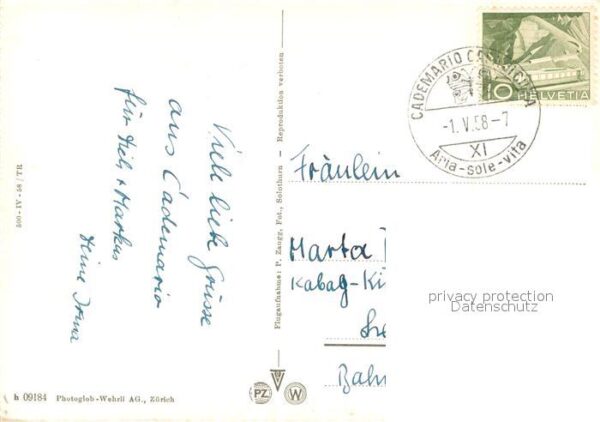 Viele liebe Grüsse
aus Cademario
für Dich + Markus
Deine Irma
500-IV-58/TR
Flugaufnahme: P. Zaugg, Fot., Solothurn — Reproduktion verboten
h 09184 Photoglob-Wehrli AG., Zürich
PZ W
CADEMARIO
-1.V.58-7
XI
Aria-sole-vita
10 HELVETIA
Fräulein
Marta
Kabag-Ki
Bahn
privacy protection
Datenschutz